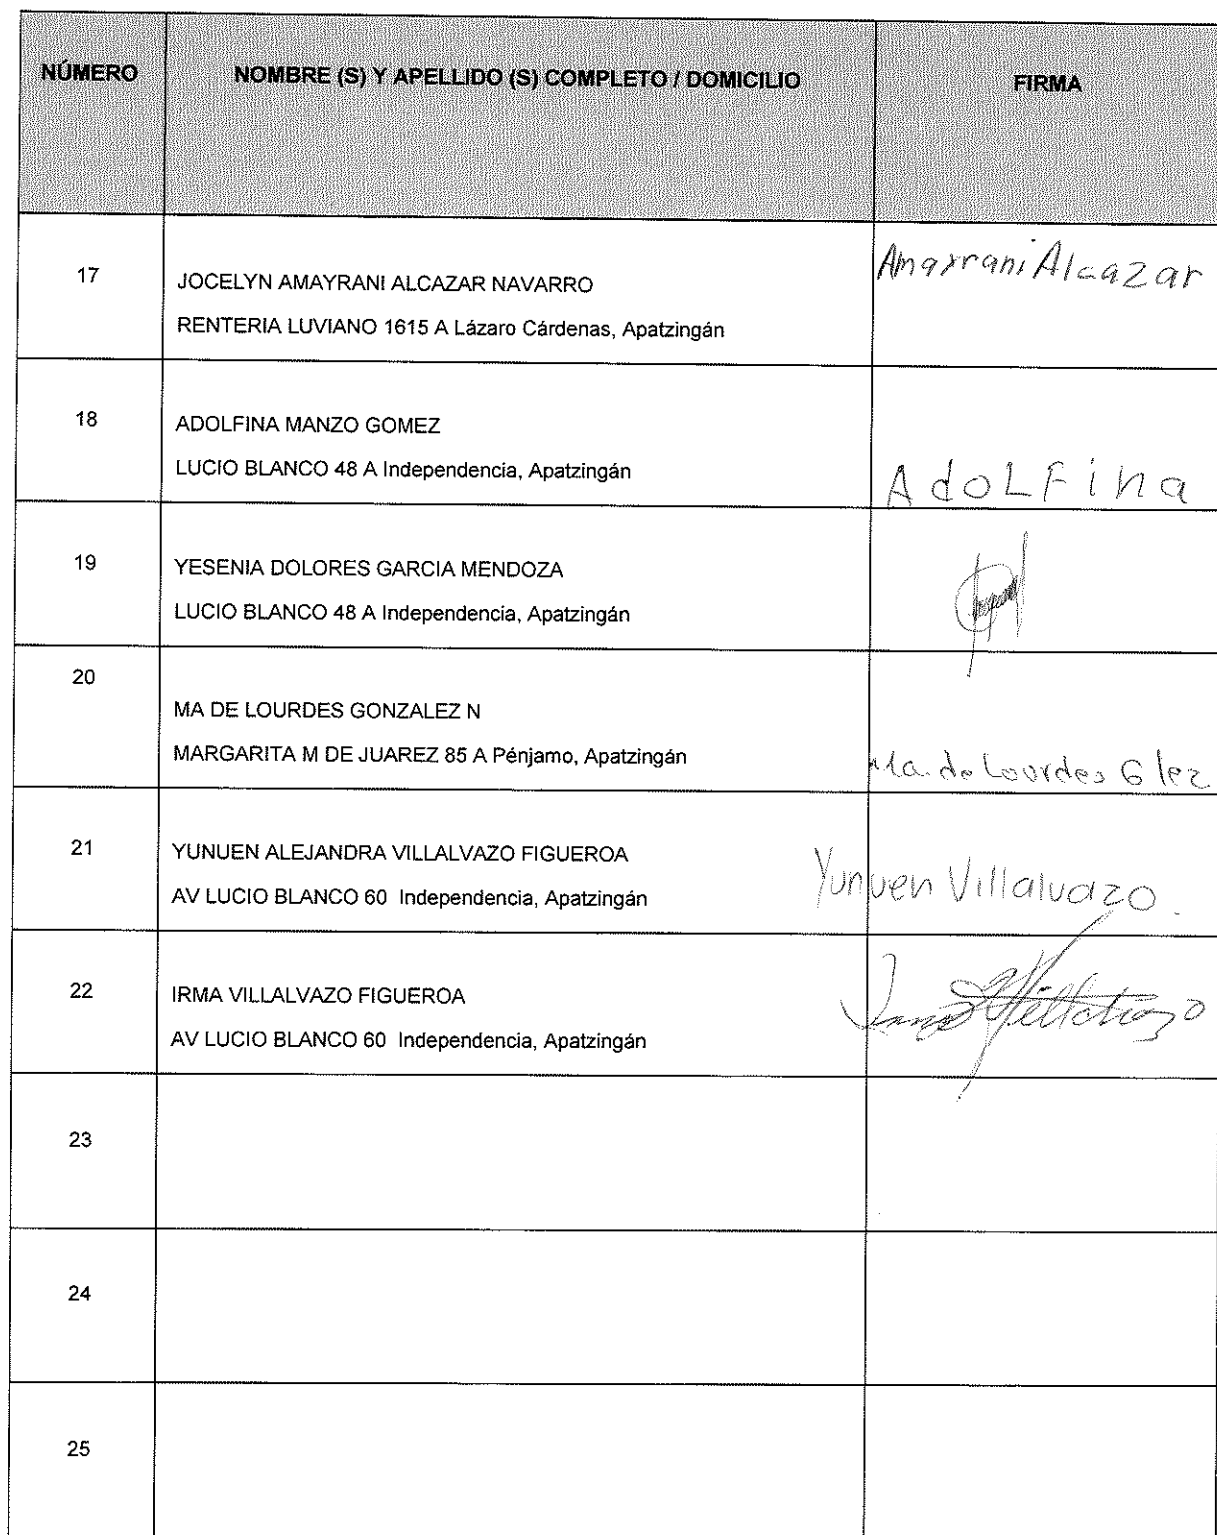 NÚMERO NOMBRE (S) Y APELLIDO (S) COMPLETO / DOMICILIO FIRMA
17
JOCELYN AMAYRANI ALCAZAR NAVARRO
RENTERIA LUVIANO 1615 A Lázaro Cárdenas, Apatzingán
Amayrani Alcazar
18
ADOLFINA MANZO GOMEZ
LUCIO BLANCO 48 A Independencia, Apatzingán
AdoLFina
19
YESENIA DOLORES GARCIA MENDOZA
LUCIO BLANCO 48 A Independencia, Apatzingán
20
MA DE LOURDES GONZALEZ N
MARGARITA M DE JUAREZ 85 A Pénjamo, Apatzingán
Ma. de Lourdes Glez
21
YUNUEN ALEJANDRA VILLALVAZO FIGUEROA
AV LUCIO BLANCO 60 Independencia, Apatzingán
Yunuen Villalvazo.
22
IRMA VILLALVAZO FIGUEROA
AV LUCIO BLANCO 60 Independencia, Apatzingán
Irma Villalvazo
23
24
25